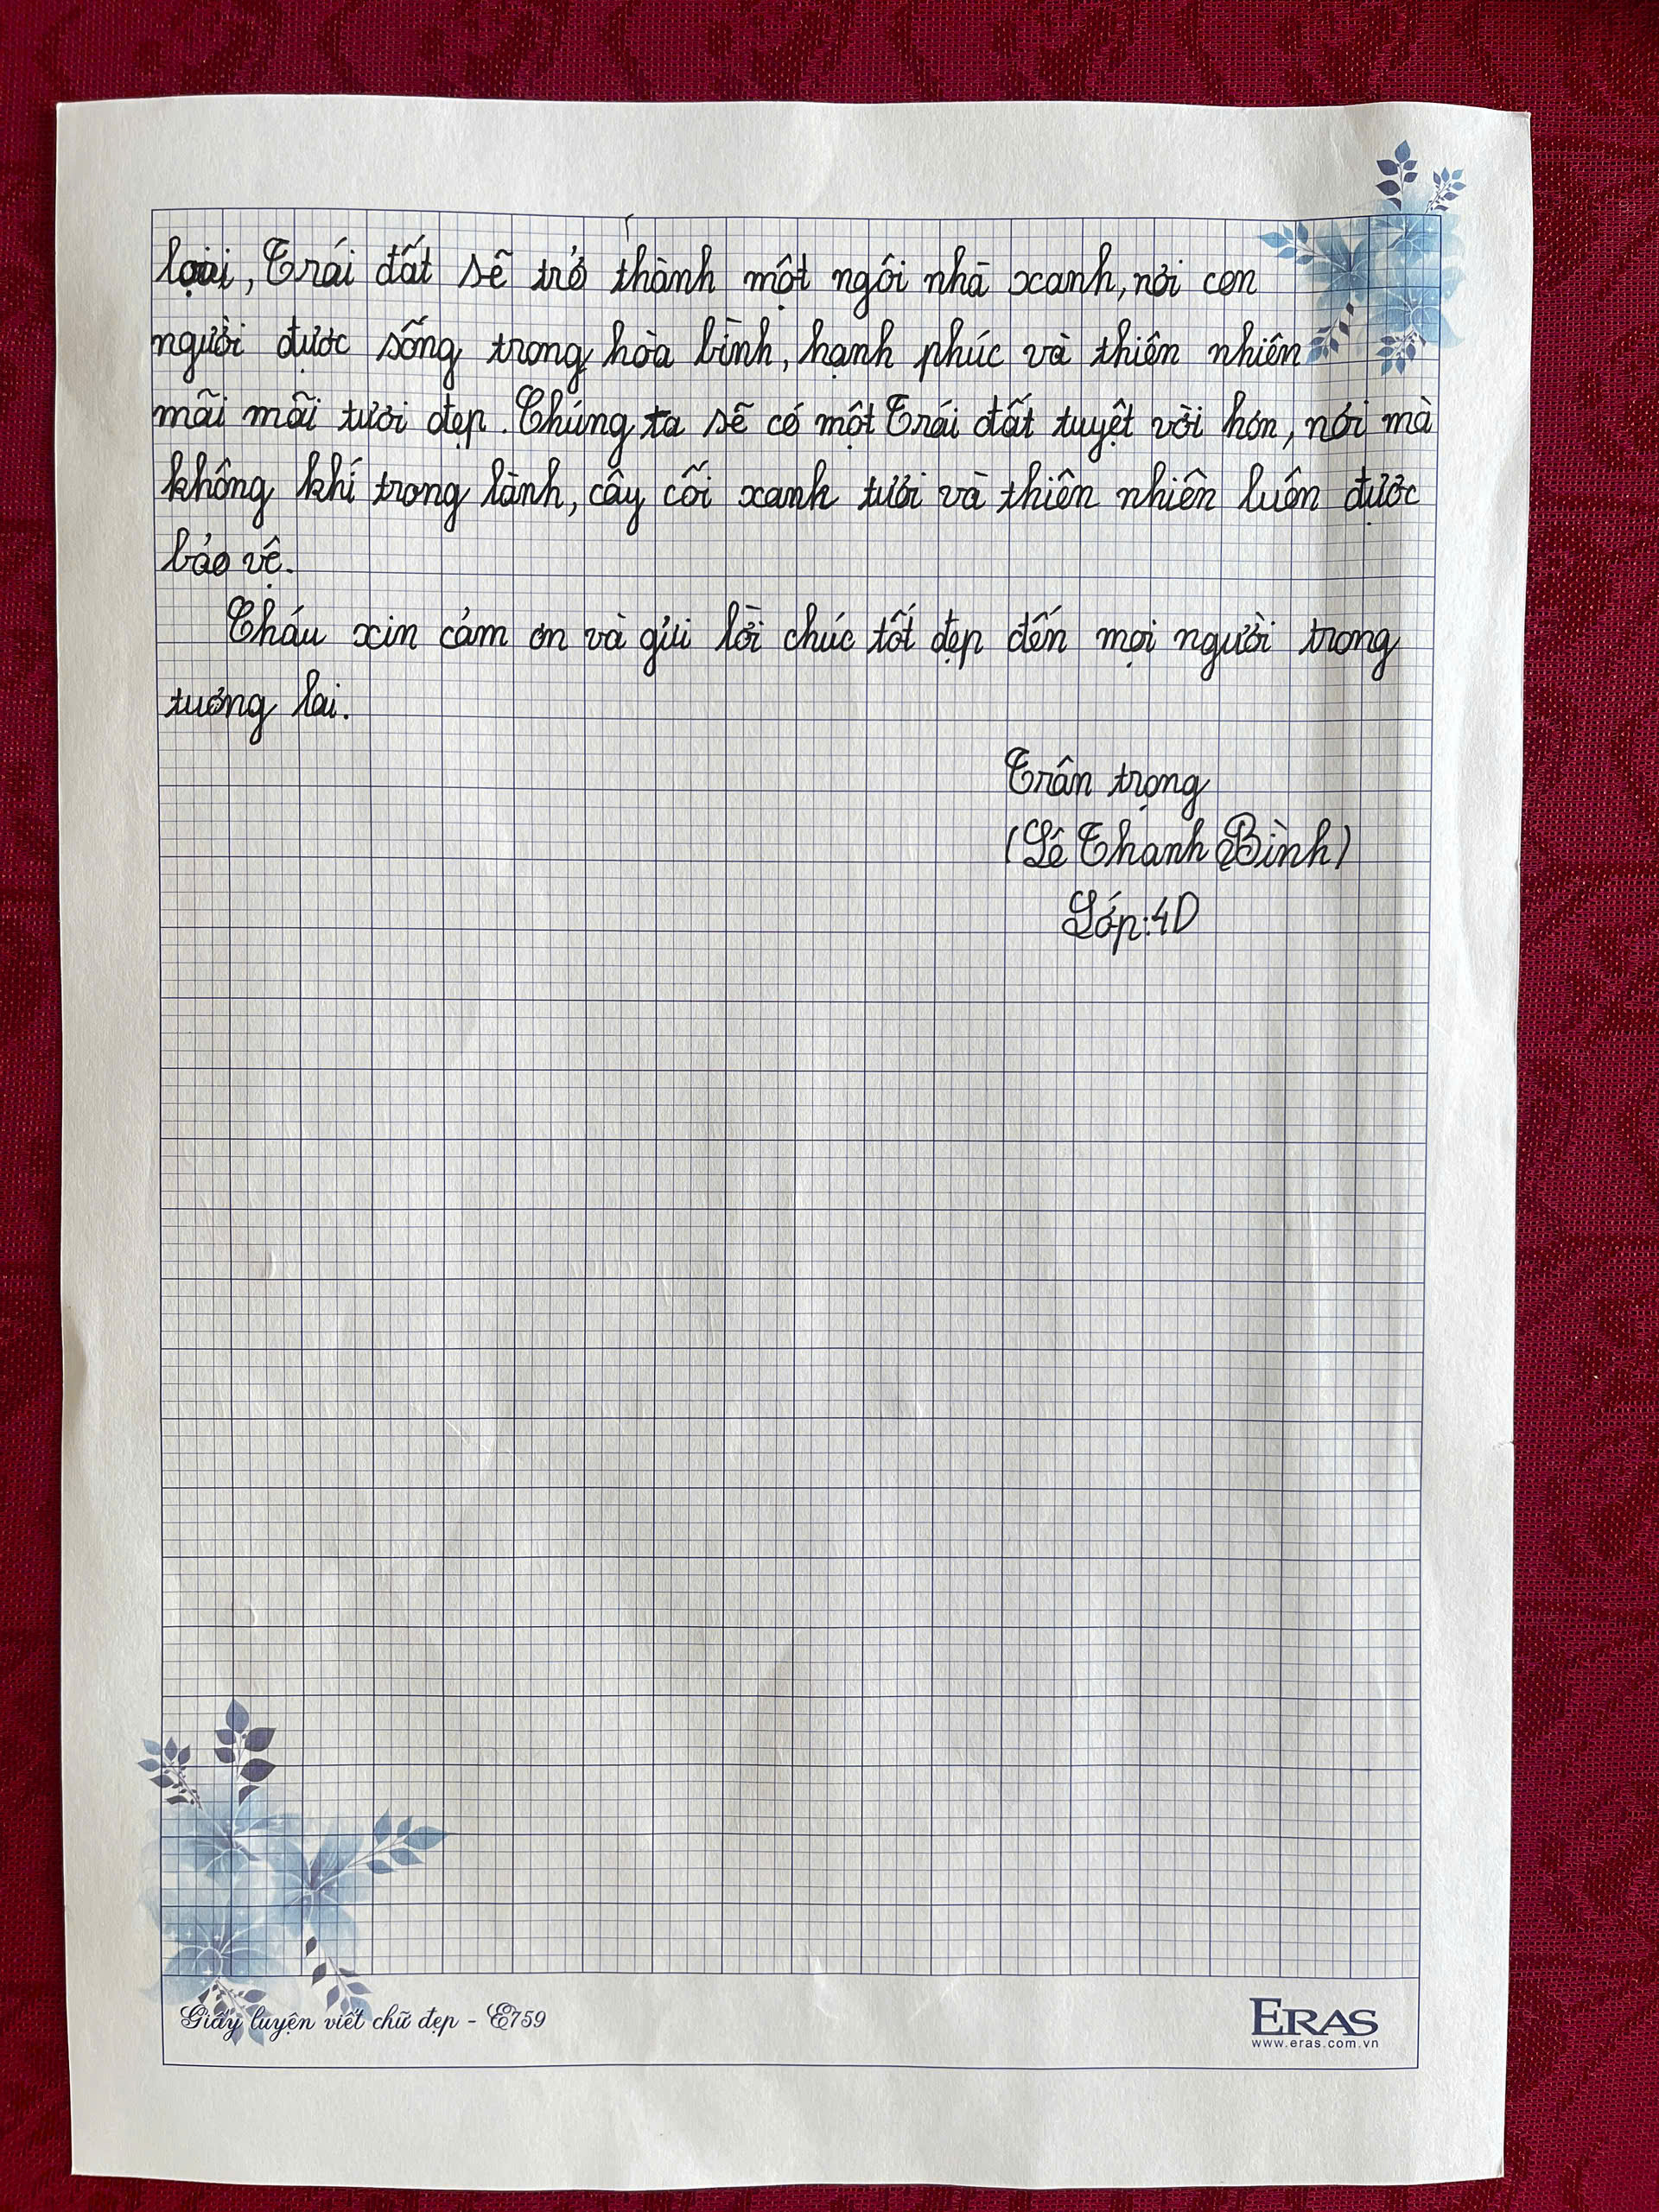 loại, Trái đất sẽ trở thành một ngôi nhà xanh, nơi con
người được sống trong hòa bình, hạnh phúc và thiên nhiên
mãi mãi tươi đẹp. Chúng ta sẽ có một Trái đất tuyệt vời hơn, nơi mà
không khí trong lành, cây cối xanh tươi và thiên nhiên luôn được
bảo vệ.
Cháu xin cảm ơn và gửi lời chúc tốt đẹp đến mọi người trong
tương lai.
Trân trọng
(Lê Thanh Bình)
Lớp: 4D
Giấy luyện viết chữ đẹp - E759
ERAS
www.eras.com.vn